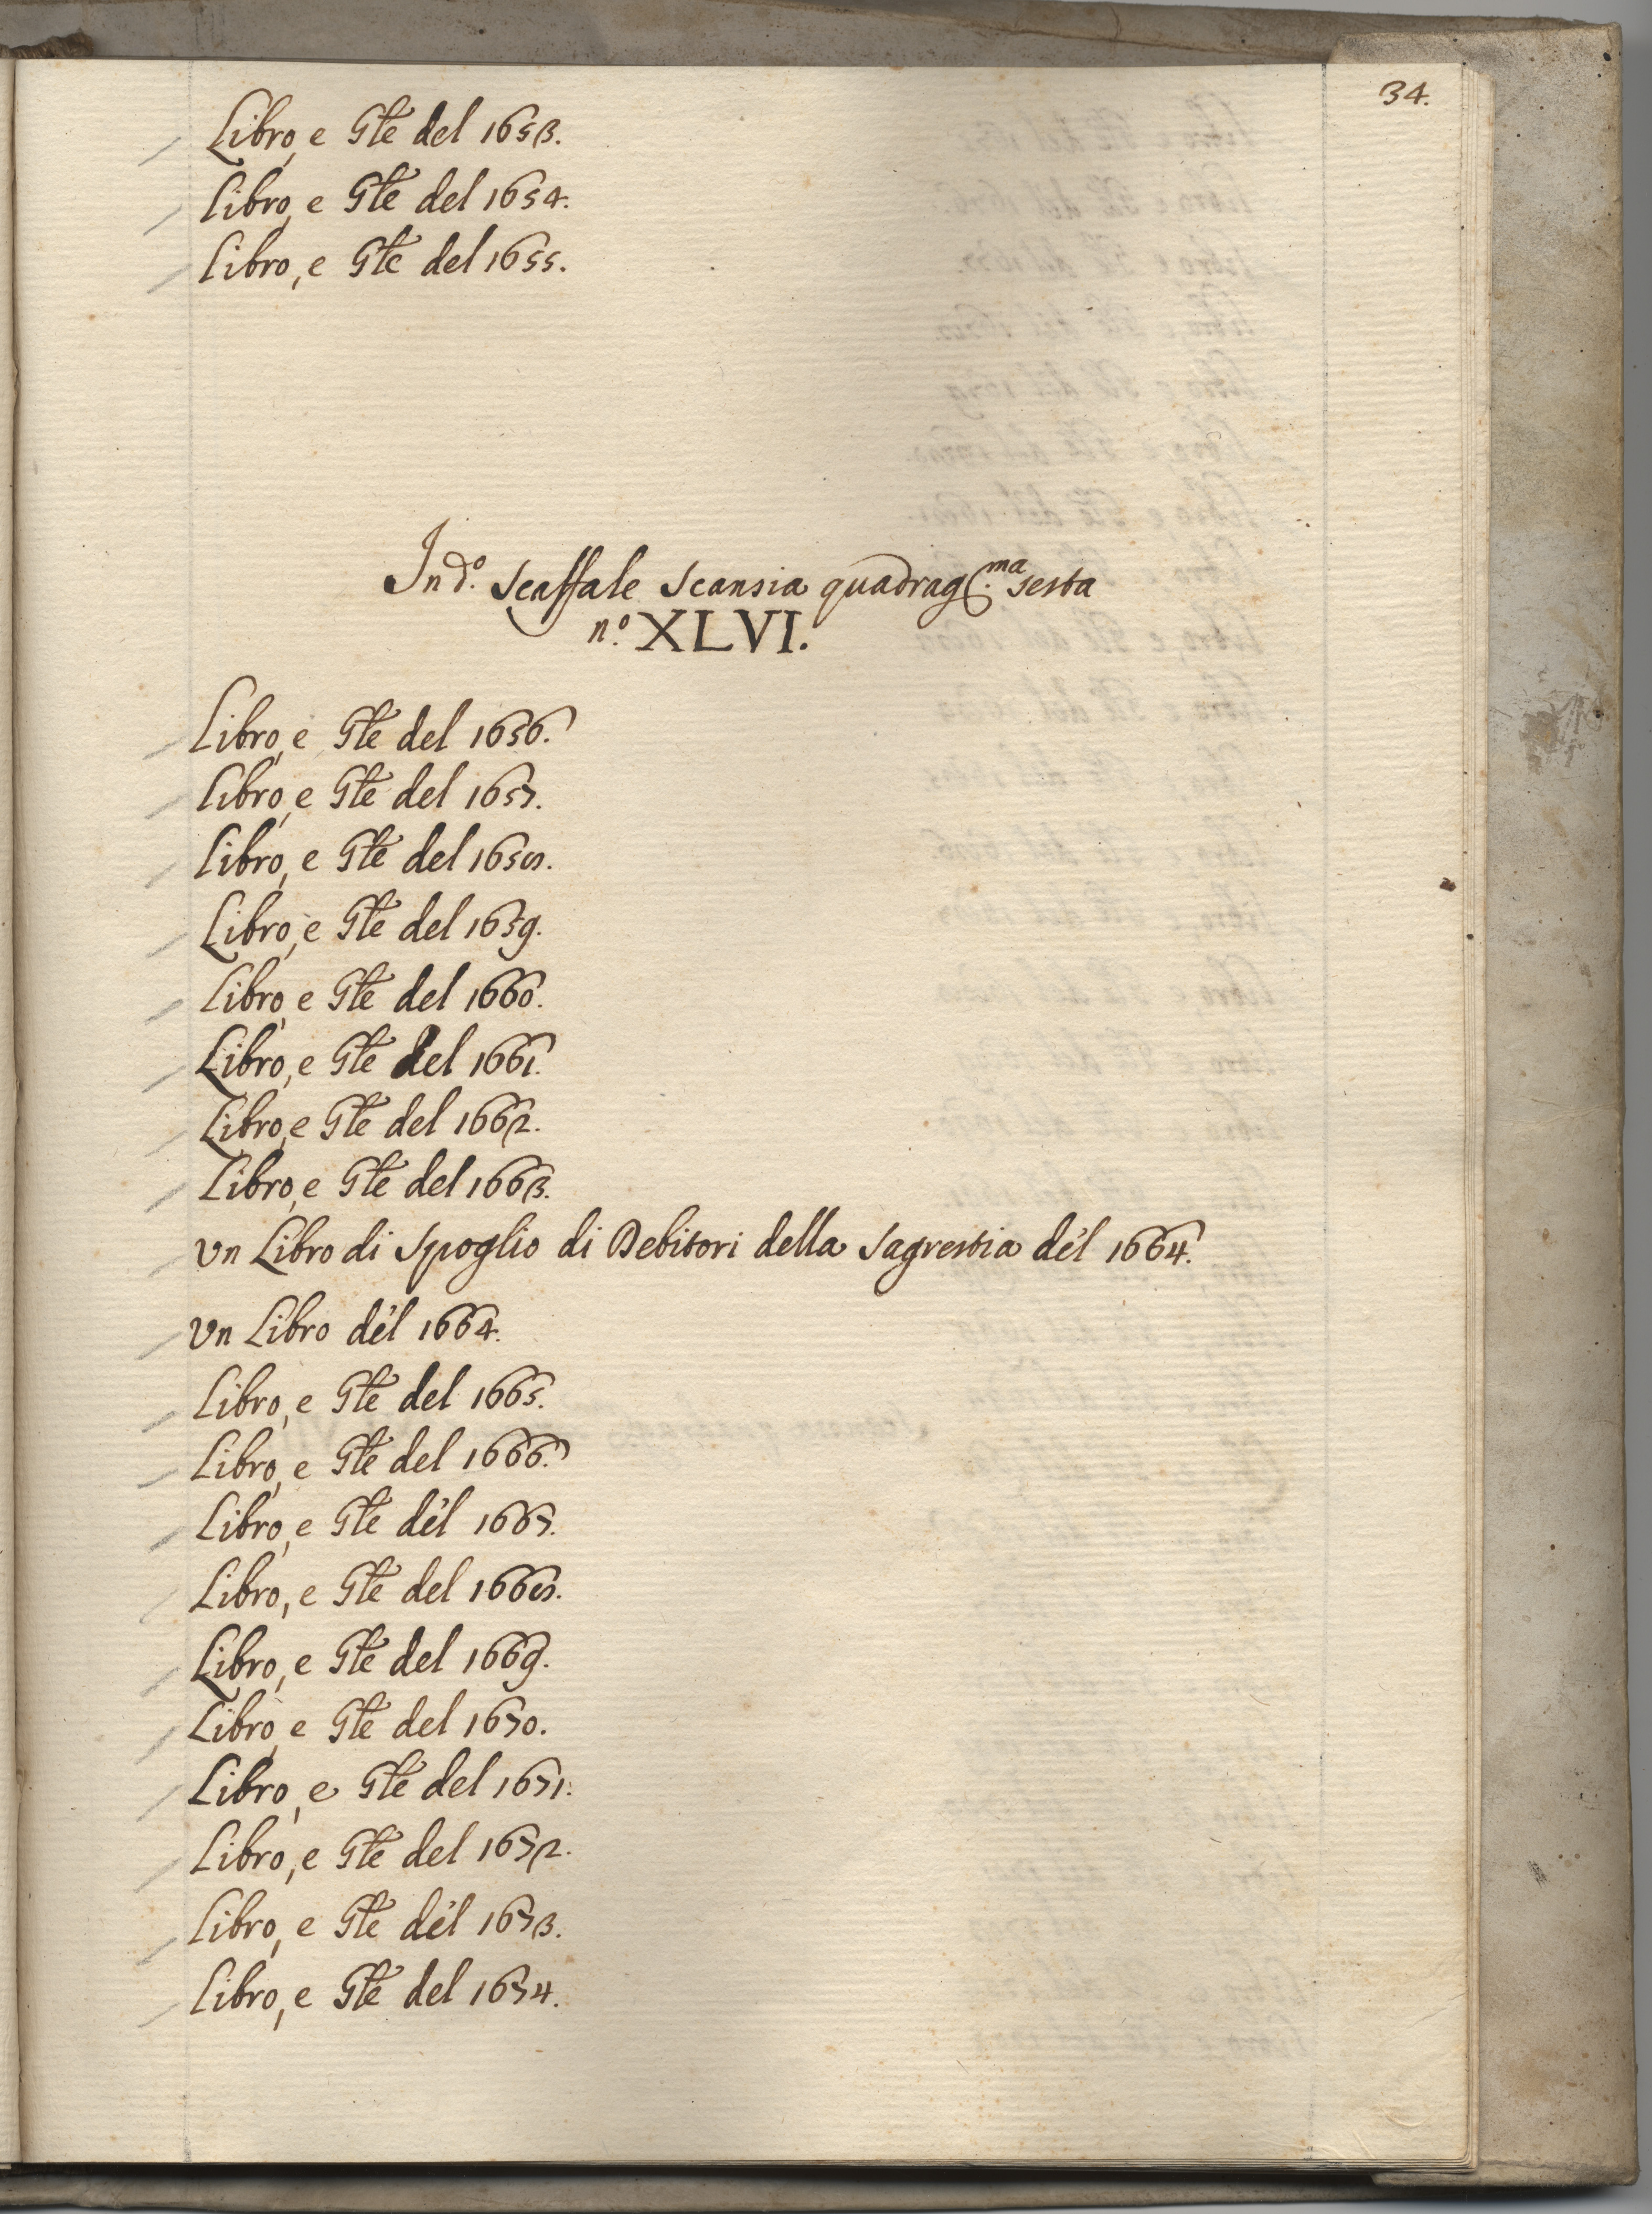 34.
Libro, e Gle del 1653.
Libro, e Gle del 1654.
Libro, e Gle del 1655.
In do. Scaffale Scansia quadrag.ma sesta
no. XLVI.
Libro, e Gle del 1656.
Libro, e Gle del 1657.
Libro, e Gle del 1658.
Libro, e Gle del 1659.
Libro, e Gle del 1660.
Libro, e Gle del 1661.
Libro, e Gle del 1662.
Libro, e Gle del 1663.
Vn Libro di Spoglio di Debitori della Sagrestia del 1664.
Vn Libro del 1664.
Libro, e Gle del 1665.
Libro, e Gle del 1666.
Libro, e Gle del 1667.
Libro, e Gle del 1668.
Libro, e Gle del 1669.
Libro, e Gle del 1670.
Libro, e Gle del 1671.
Libro, e Gle del 1672.
Libro, e Gle del 1673.
Libro, e Gle del 1674.